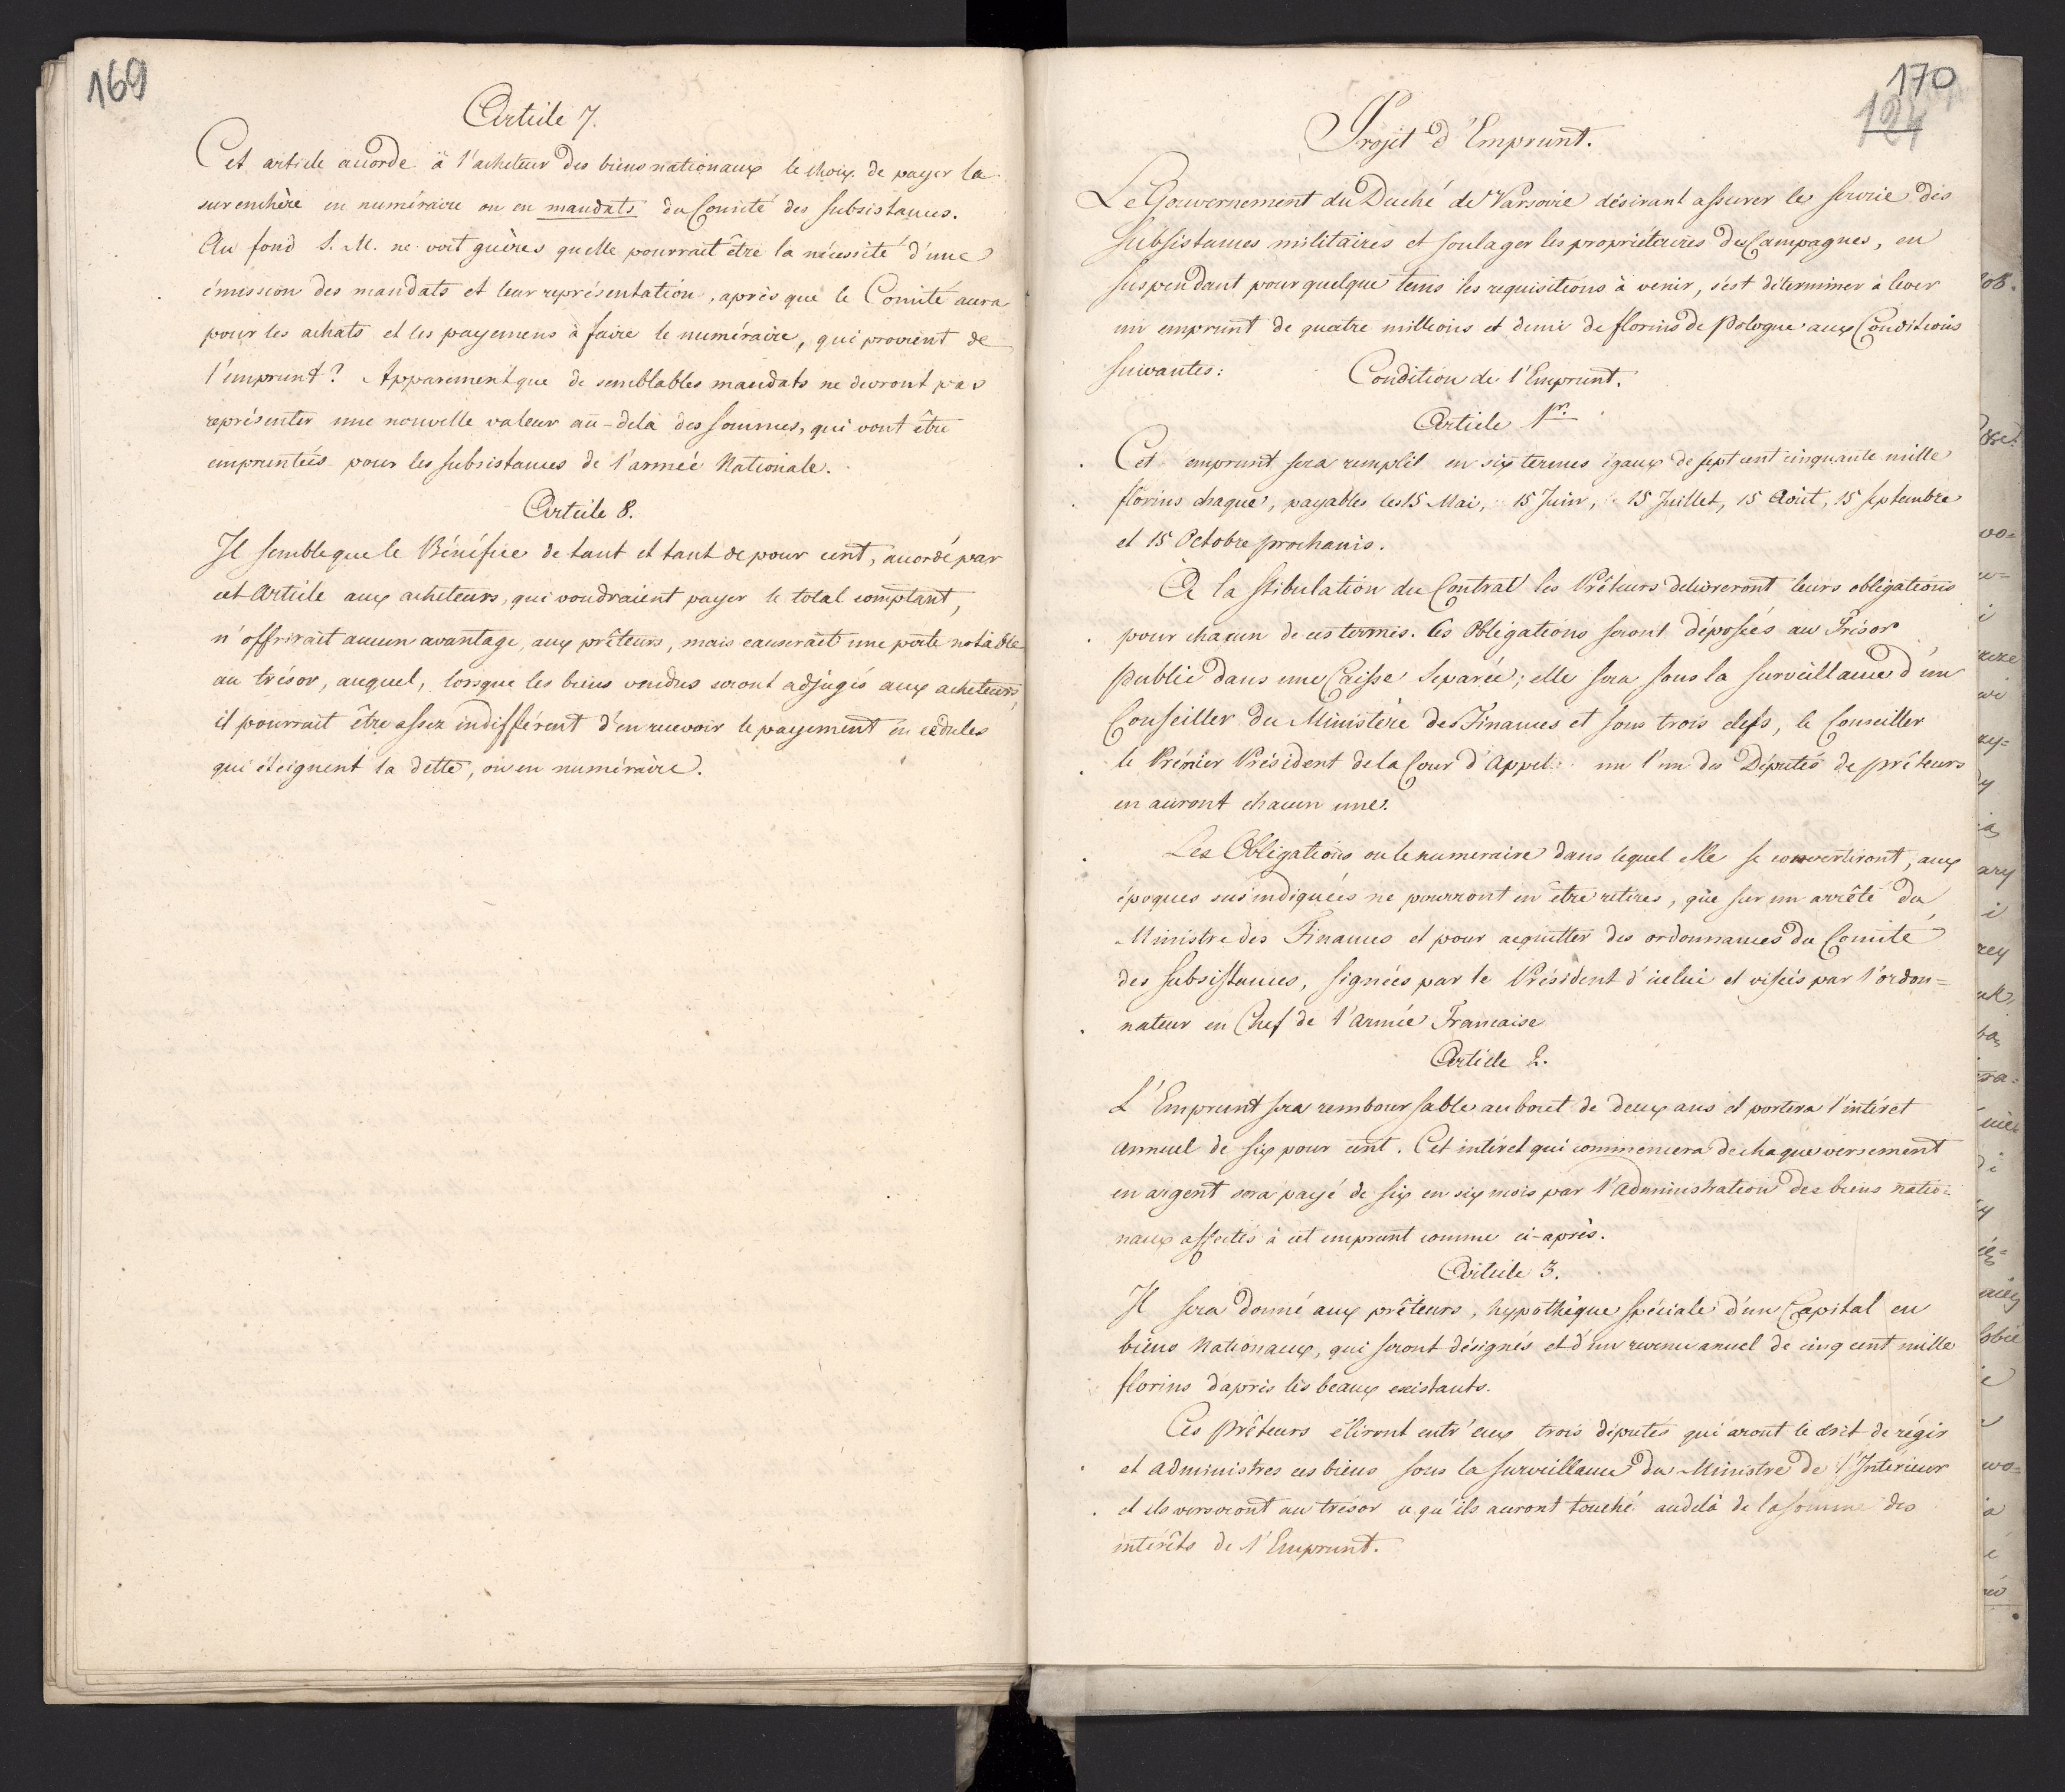 169
Article 7.
Cet article accorde à l'acheteur des biens nationaux le choix de payer la
surenchère en numéraire ou en mandats du Comité des subsistances.
Au fond S. M. ne voit guères quelle pourrait être la nécessité d'une
émission des mandats et leur représentation, après que le Comité aura
pour les achats et les payemens à faire le numéraire, qui provient de
l'emprunt? Apparement que de semblables mandats ne devront pas
représenter une nouvelle valeur au-delà des sommes, qui vont être
empruntées pour les subsistances de l'armée Nationale.
Article 8.
Il semble que le Bénéfice de tant et tant de pour cent, accordé par
cet Article aux acheteurs, qui voudraient payer le total comptant,
n'offrirait aucun avantage, aux prêteurs, mais causerait une perte notable
au trésor, auquel, lorsque les biens vendus seront adjugés aux acheteurs,
il pourrait être assez indifférent d'en recevoir le payement en cédules
qui éteignent la dette, ou en numéraire.
170
124
Projet d'Emprunt.
Le Gouvernement du Duché de Varsovie désirant assurer le service des
subsistances militaires et soulager les propriétaires des Campagnes, en
suspendant pour quelque tems les requisitions à venir, s'est déterminer à lever
un emprunt de quatre millions et demi de florins de Pologne aux Conditions
suivantes:
Condition de l'Emprunt.
Article 1r.
Cet emprunt sera remplit en six termes égaux de sept cent cinquante mille
florins chaque, payables les 15 Mai, 15 Juin, 15 Juillet, 15 Août, 15 Septembre
et 15 Octobre prochains.
A la stibulation du Contrat les Prêteurs delivreront leurs obligations
pour chacun de ces termes. Ces Obligations seront déposées au Trésor
public dans une Caisse Separée; elle sera sous la surveillance d'un
Conseiller du Ministère des Finances et sous trois clefs, le Conseiller
le Prémier Président de la Cour d'Appel un l'un des Députés de prêteurs
en auront chacun une.
Les Obligations ou le numeraire dans lequel elle se convertiront, aux
époques sus indiquées ne pourront en être retires, que sur un arrêté du
Ministre des Finances et pour acquitter des ordonnances du Comité
des subsistances, signées par le Président d'icelui et visées par l'ordon=
nateur en Chef de l'armée Francaise
Article 2.
L'Emprunt sera remboursable au bout de deux ans et portera l'intéret
annuel de six pour cent. Cet intéret qui commencera de chaque versement
en argent sera payé de six en six mois par l'administration des biens natio=
naux affectés à cet emprunt comme ci-après.
Article 3.
Il sera donné aux prêteurs, hypothèque spéciale d'un Capital en
biens Nationaux, qui seront désignés et d'un revenu anuel de cinq cent mille
florins d'après les beaux existants.
Ces Prêteurs éliront entr'eux trois députés qui aront le droit de régir
et administres ces biens sous la surveillance du Ministre de l'Intérieur
et ils verseront au trésor ce qu'ils auront touché audelà de la somme des
intérêts de l'Emprunt.